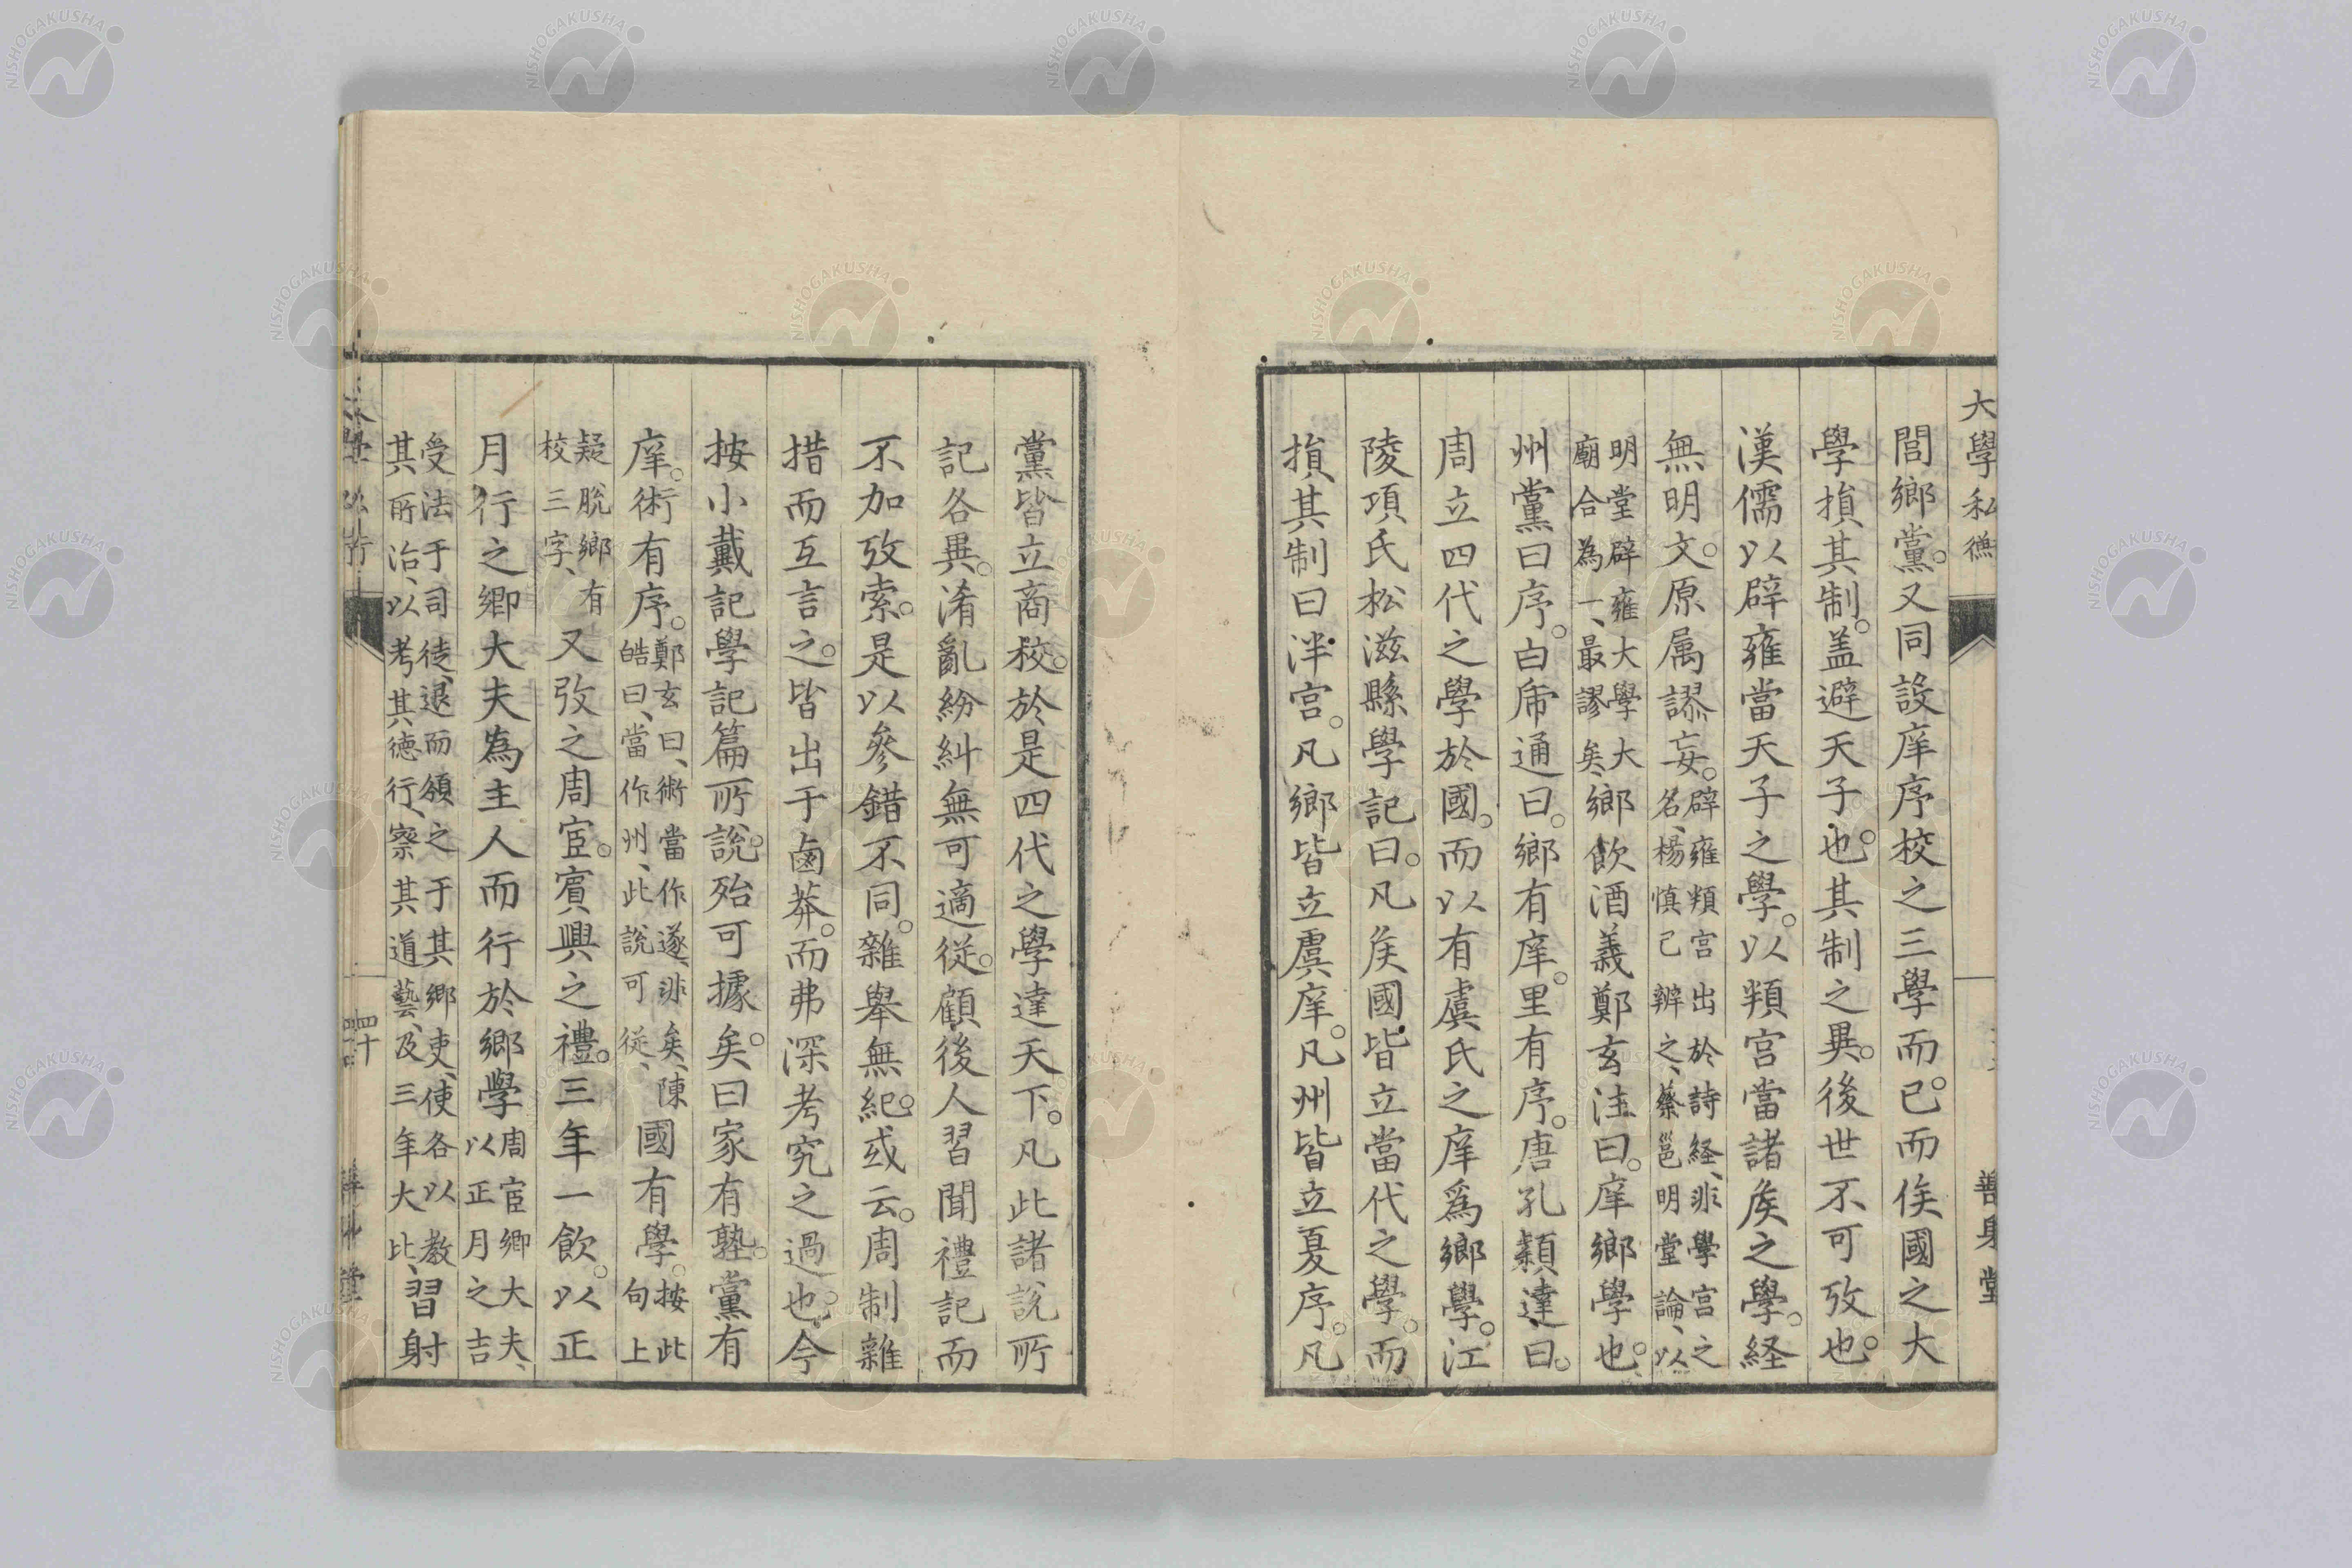 大學私
善身堂
閭鄉黨。又同設庠序校之三學而已。而侯國之大
學損其制。盖避天子也。其制之異。後世不可攷也。
漢儒以辟雍當天子之學。以頖宮當諸矦之學。経
無明文。原属謬妄。辟雍頖宮出於詩経、非學宮之
名、楊慎已辨之、蔡邕明堂論、以
明堂辟雍大學大
廟合為一、最謬矣、鄉飲酒義鄭玄注曰。庠鄉學也。
州黨曰序。白乕通曰。鄉有庠。里有序。唐孔穎達曰。
周立四代之學於國。而以有虞氏之庠爲鄉學。江
陵項氏松滋縣學記曰。凡矦國皆立當代之學。而
損其制曰泮宮。凡鄉皆立虞庠。凡州皆立夏序。凡
黨皆立商校。於是四代之學達天下。凡此諸說所
記各異。淆亂紛糾無可適從。顧後人習聞禮記而
不加攷索。是以參錯不同。雜舉無紀。或云。周制雜
措而互言之。皆出于鹵莽。而弗深考究之過也。今
按小戴記學記篇所說。殆可據矣。曰家有塾。黨有
庠。術有序。鄭玄曰、術當作遂、非矣、陳
皓曰、當作州、此說可從、國有學。按此
句上
疑脫鄉有
校三字、又攷之周官。賓興之禮。三年一飲。以正
月行之鄉大夫為主人而行於鄉學周官鄉大夫、
以正月之吉
受法于司徒、退而頒之于其鄉吏、使各以教
其所治、以考其德行、察其道藝、及三年大比、習射
四十
NISHOGAKUSHA